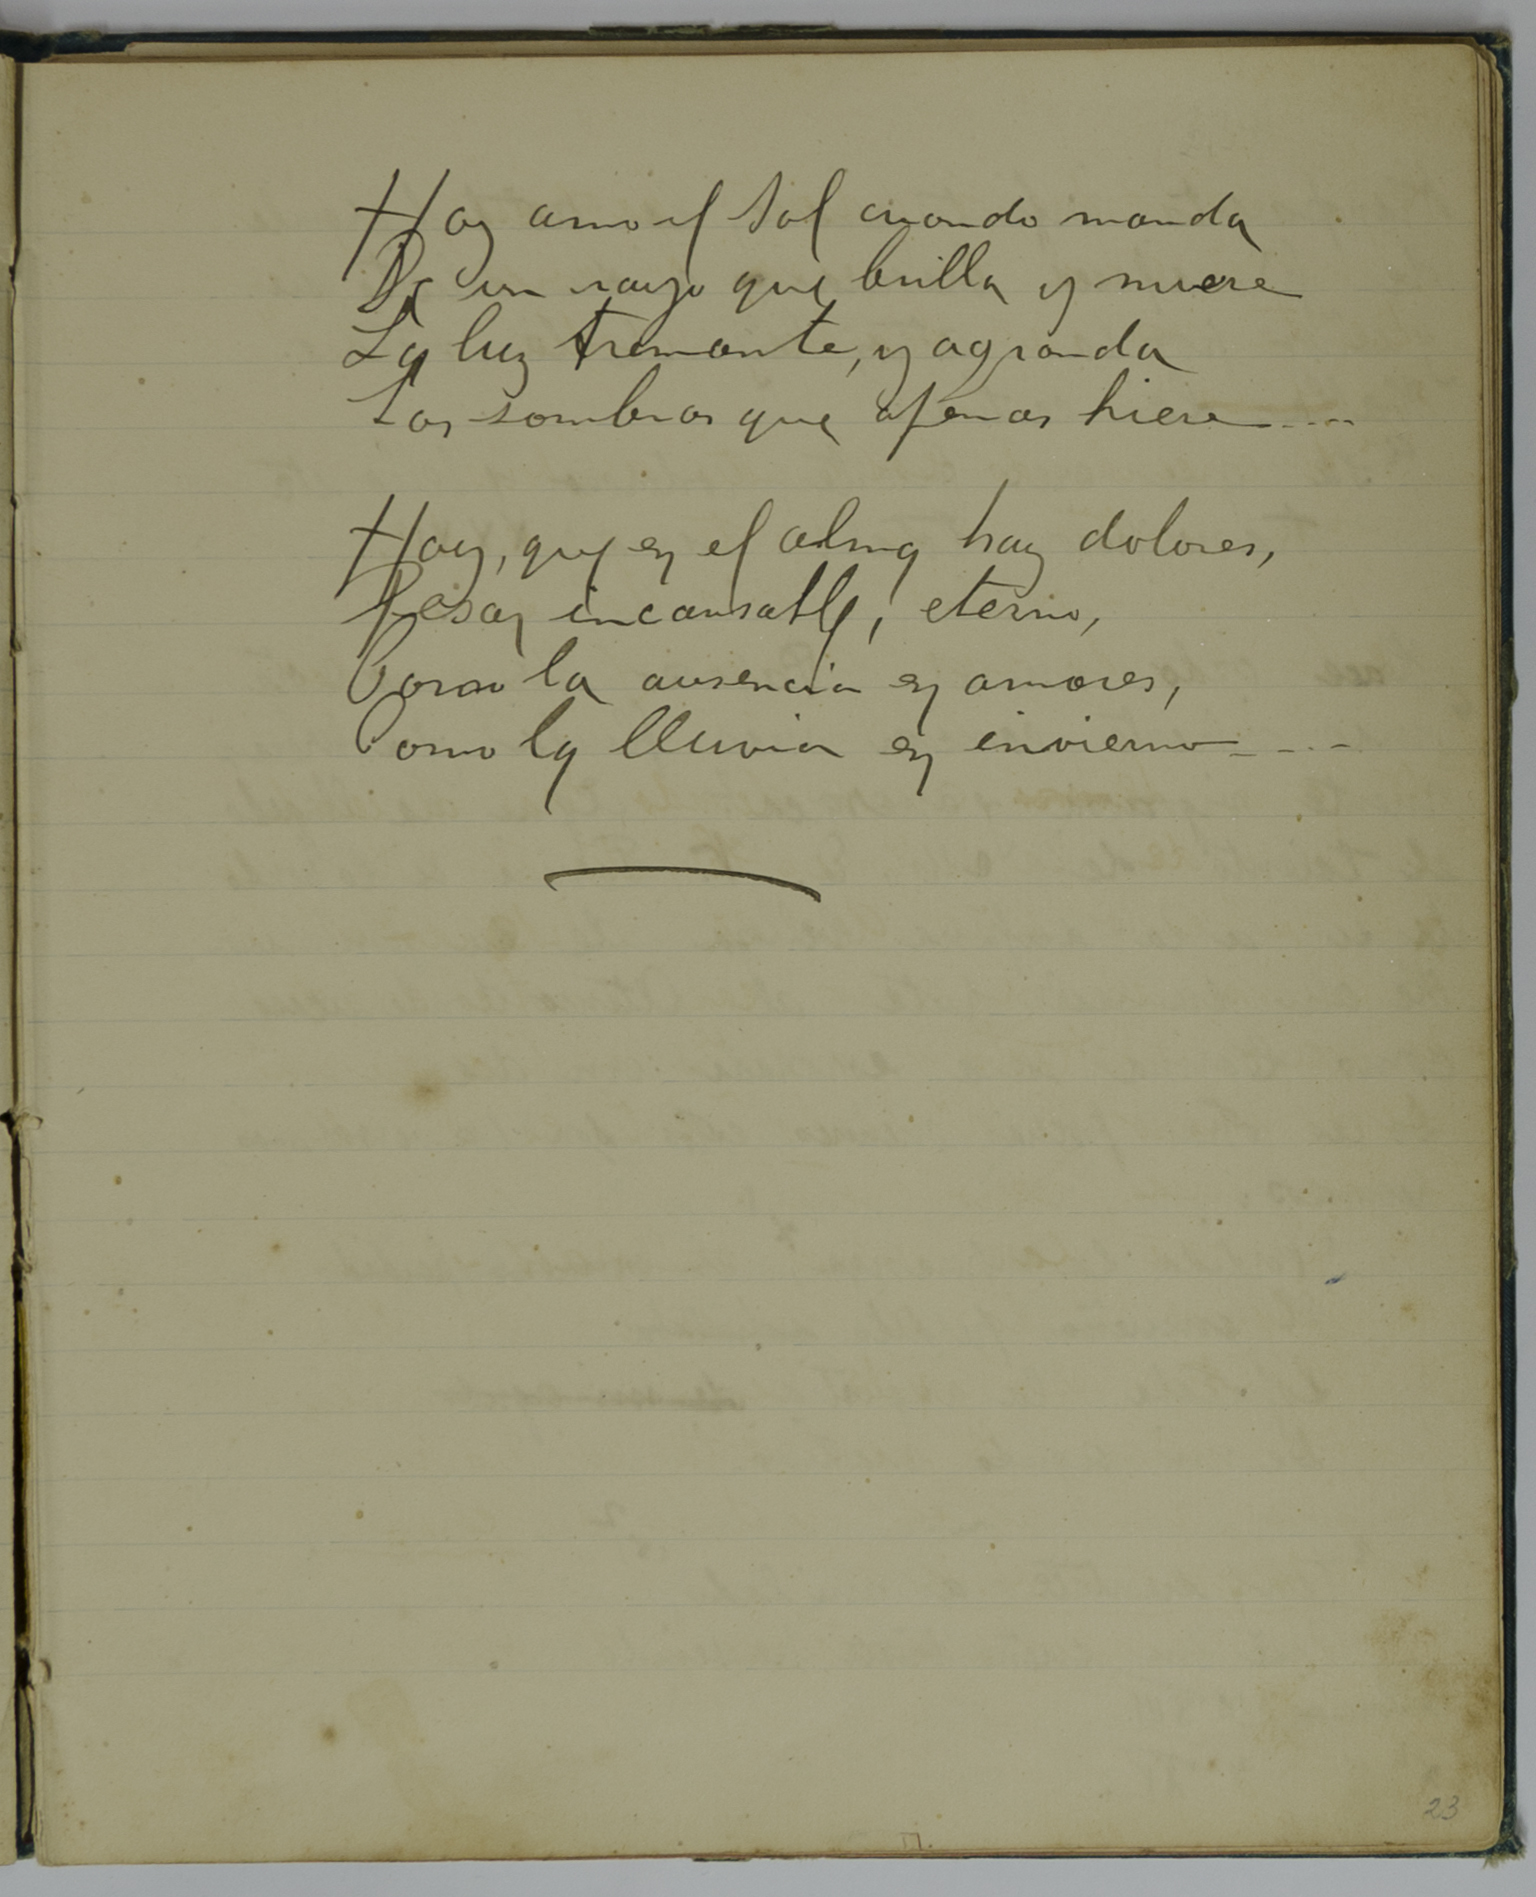 Hoy amo el sol cuando manda
De un rayo que brilla y muere
La luz tremante, y agranda
Las sombras que apenas hiere....
Hoy, que en el alma hay dolores,
Pesar incansable, eterno,
Como la ausencia en amores,
Como la lluvia en invierno....
23